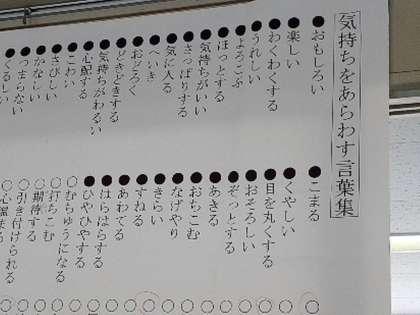 気持ちをあらわす言葉集
●おもしろい
●楽しい
●わくわくする
●うれしい
●よろこぶ
●ほっとする
●気持ちがいい
●さっぱりする
●気に入る
●へいき
●おどろく
●どきどきする
●気持ちがわるい
●心配する
●こわい
●さびしい
●かなしい
●つまらない
●くるしい
●こまる
●くやしい
●目を丸くする
●おそろしい
●ぞっとする
●あきる
●おちこむ
●なげやり
●きらい
●すねる
●あわてる
●はらはらする
●ひやひやする
○むちゅうになる
○打ちこむ
○期待する
○引き付けられる